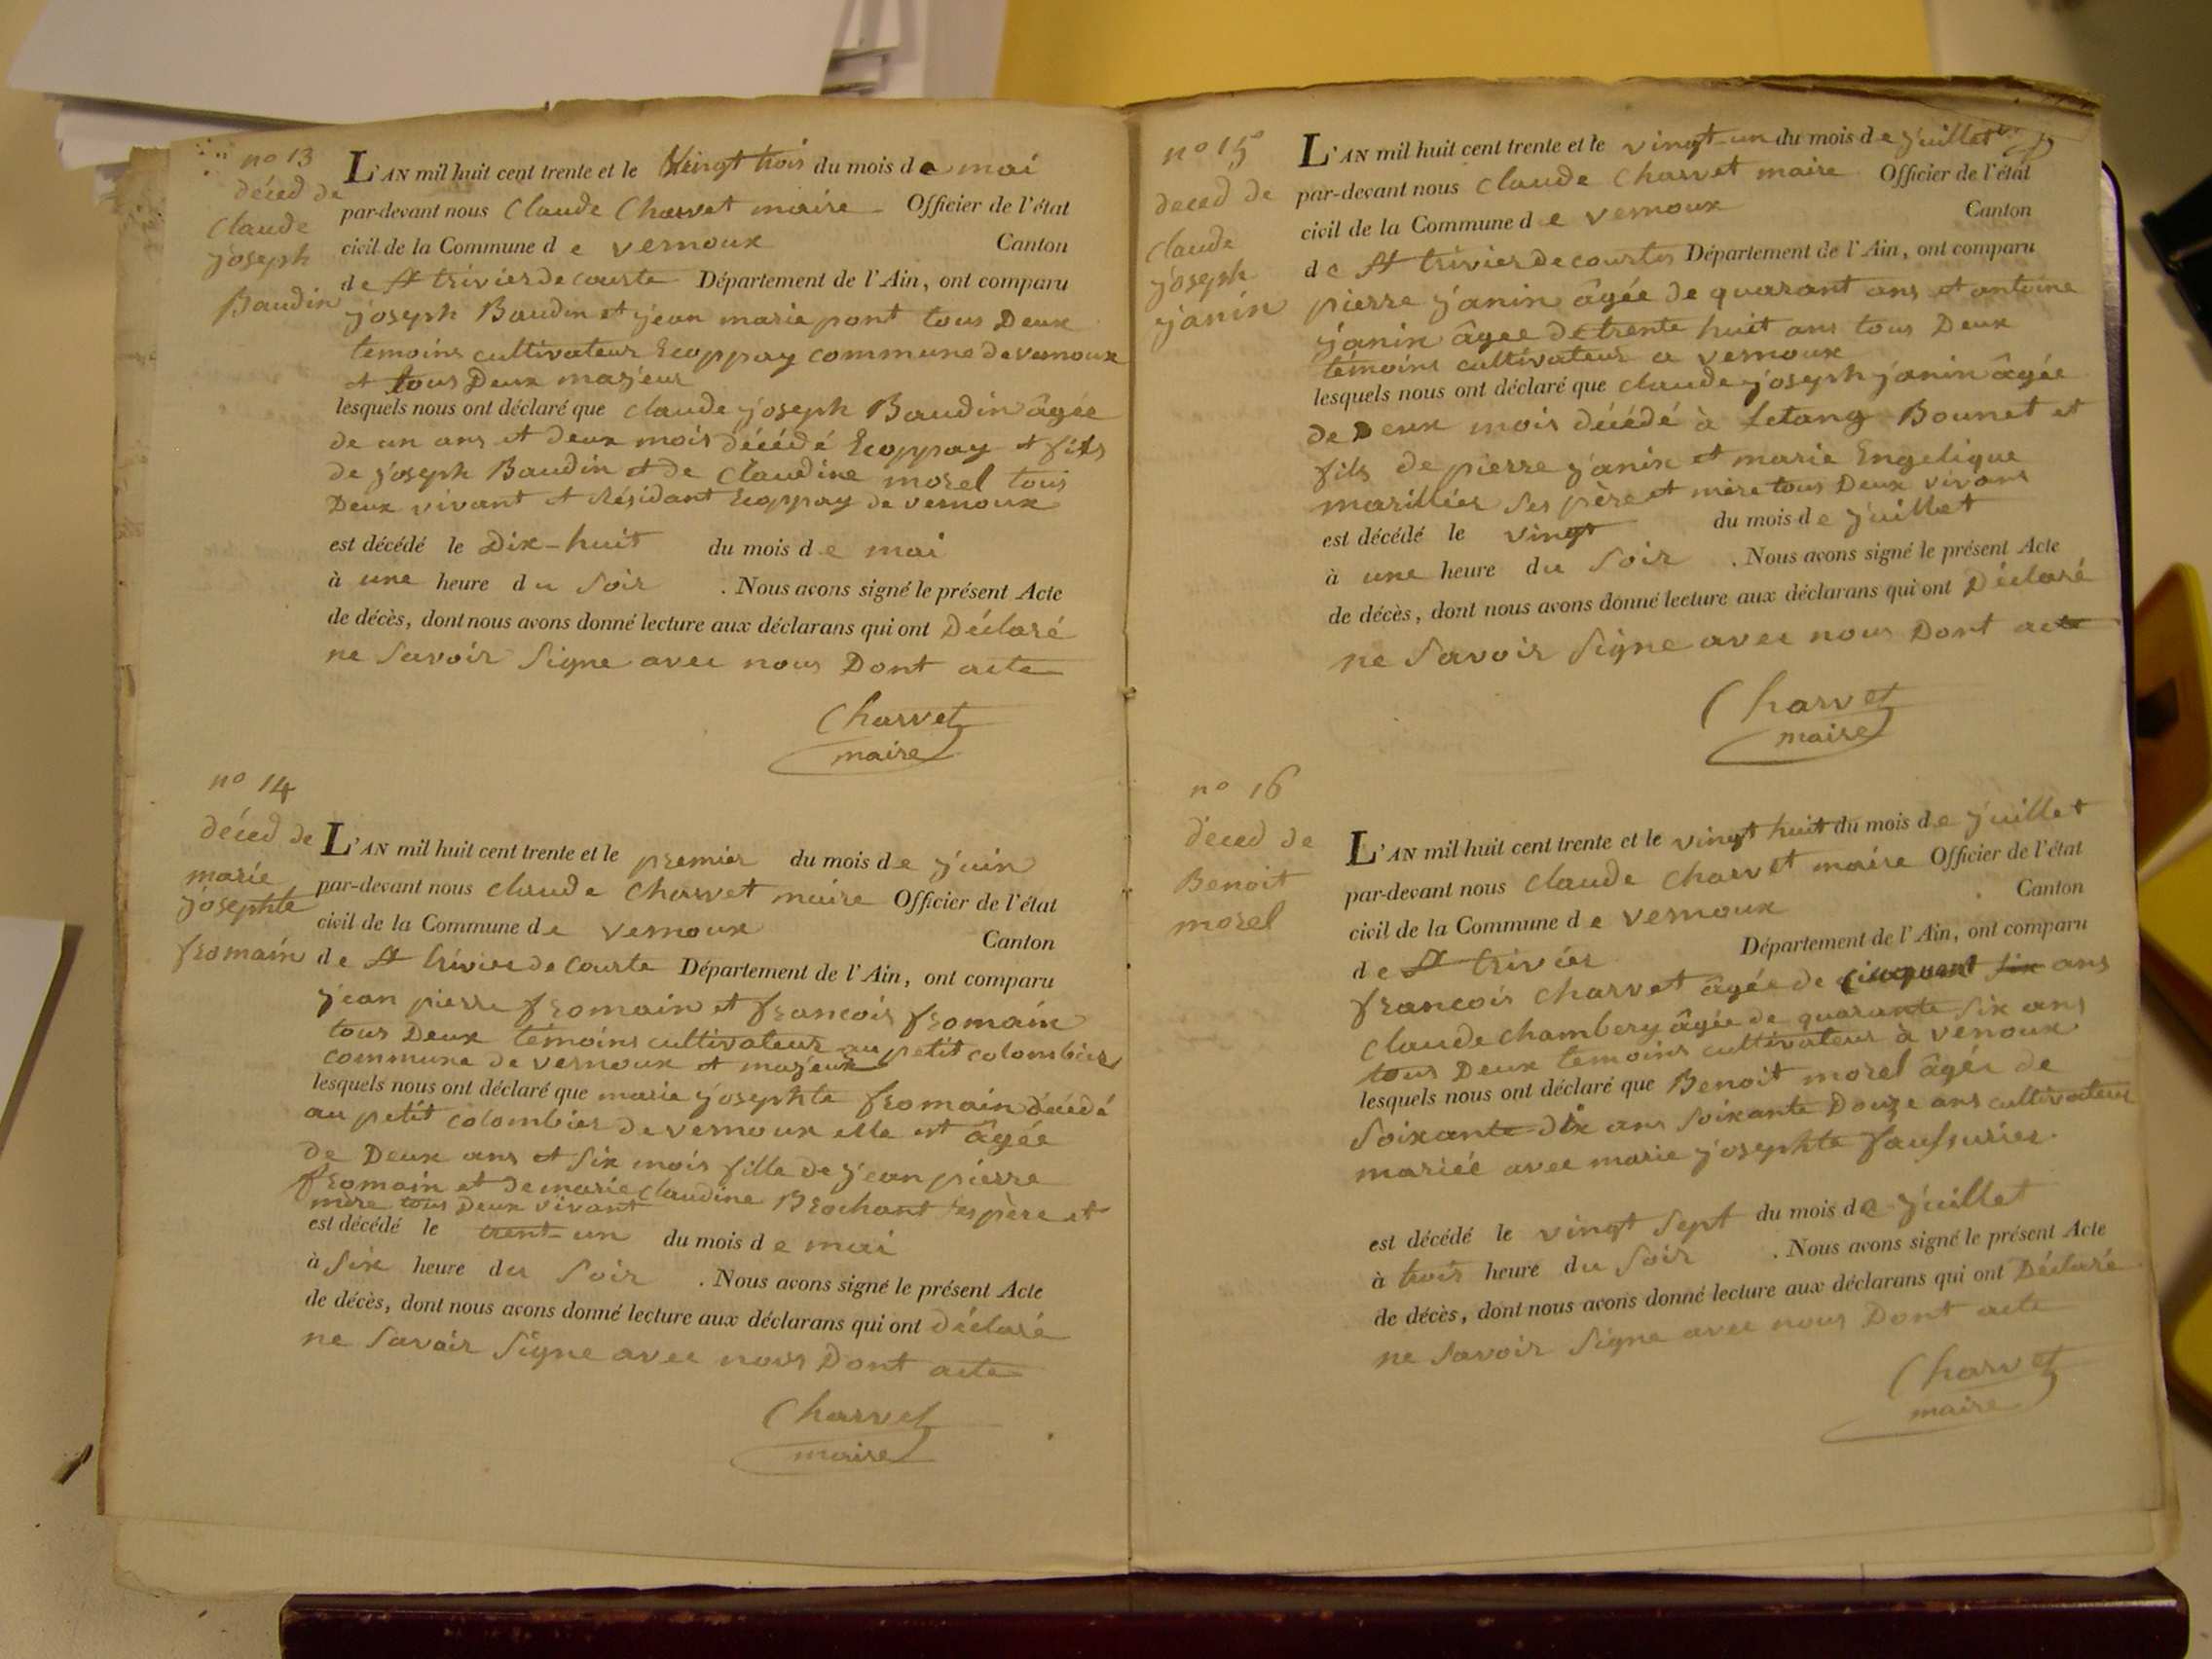 no 13
déced de
Claude
joseph
Baudin
L'AN mil huit cent trente et le vingt trois du mois de mai
par-devant nous Claude Charvet maire Officier de l'état
civil de la Commune de vernoux Canton
de St trivier de courte Département de l'Ain, ont comparu
joseph Baudin et jean marie pont tous Deux
temoins cultivateur Ecoppay commune de vernoux
et tous Deux majeur
lesquels nous ont déclaré que claude joseph Baudin âgée
de un ans et deux mois décédé Ecoppay et fils
de joseph Baudin et de Claudine morel tous
Deux vivant et Résidant Ecoppay de vernoux
est décédé le Dix-huit du mois de mai
à une heure du Soir . Nous avons signé le présent Acte
de décès, dont nous avons donné lecture aux déclarans qui ont Déclaré
ne Savoir Signe avec nous Dont acte
Charvet
maire
no 14
déced de
marie
josephte
fromain
L'AN mil huit cent trente et le premier du mois de juin
par-devant nous claude Charvet maire Officier de l'état
civil de la Commune de vernoux
Canton
de St trivier de Courte Département de l'Ain, ont comparu
jean pierre fromain et francois fromain
tous Deux temoins cultivateur au petit colombier
commune de vernoux et majeur
lesquels nous ont déclaré que marie josephte fromain décédé
au petit colombier de vernoux elle est âgée
de Deux ans et Six mois fille de jean pierre
fromain et de marie claudine Brochant ses père et
mère tous Deux vivant
est décédé le trent-un du mois de mai
à Six heure du Soir . Nous avons signé le présent Acte
de décès, dont nous avons donné lecture aux déclarans qui ont déclaré
ne Savoir Signe avec nous Dont acte
Charvet
maire
no 15
déced de
claude
joseph
janin
L'AN mil huit cent trente et le vingt-un du mois de juillet
par-devant nous Claude Charvet maire Officier de l'état
civil de la Commune de vernoux Canton
de St trivier de courtes Département de l'Ain, ont comparu
pierre janin âgée de quarant ans et antoine
janin âgee de trente huit ans tous Deux
témoins cultivateur a vernoux
lesquels nous ont déclaré que claude joseph janin âgée
de Deux mois décédé à Letang Bounet et
fils de pierre janin et marie Engelique
marillier Ses père et mère tous Deux vivans
est décédé le vingt du mois de juillet
à une heure du Soir . Nous avons signé le présent Acte
de décès, dont nous avons donné lecture aux déclarans qui ont Déclaré
ne Savoir Signe avec nous Dont acte
Charvet
maire
no 16
déced de
Benoit
morel
L'AN mil huit cent trente et le vingt huit du mois de juillet
par-devant nous Claude Charvet maire Officier de l'état
civil de la Commune de vernoux Canton
de St trivier Département de l'Ain, ont comparu
francois charvet âgée de cinquant six ans
Claude Chambery âgée de quarante Six ans
tous Deux temoins cultivateur à venoux
lesquels nous ont déclaré que Benoit morel âgée de
Soixante-dix ans Soixante Douze ans cultivateur
mariéé avec marie josephte faussurier
est décédé le vingt Sept du mois de juillet
à trois heure du Soir . Nous avons signé le présent Acte
de décès, dont nous avons donné lecture aux déclarans qui ont Déclaré
ne Savoir Signe avec nous Dont acte
Charvet
maire